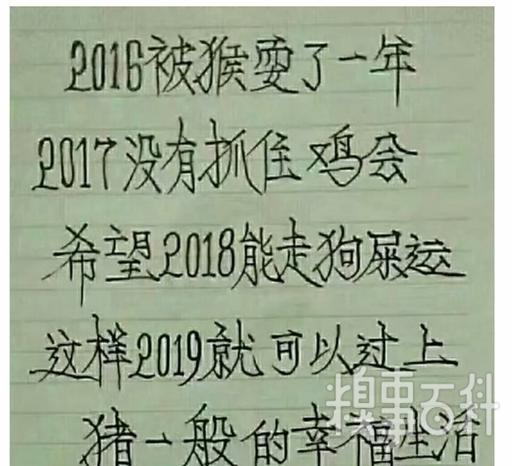 2016被猴耍了一年
2017没有抓住鸡会
希望2018能走狗屎运
这样2019就可以过上
猪一般的幸福生活
糗事百科